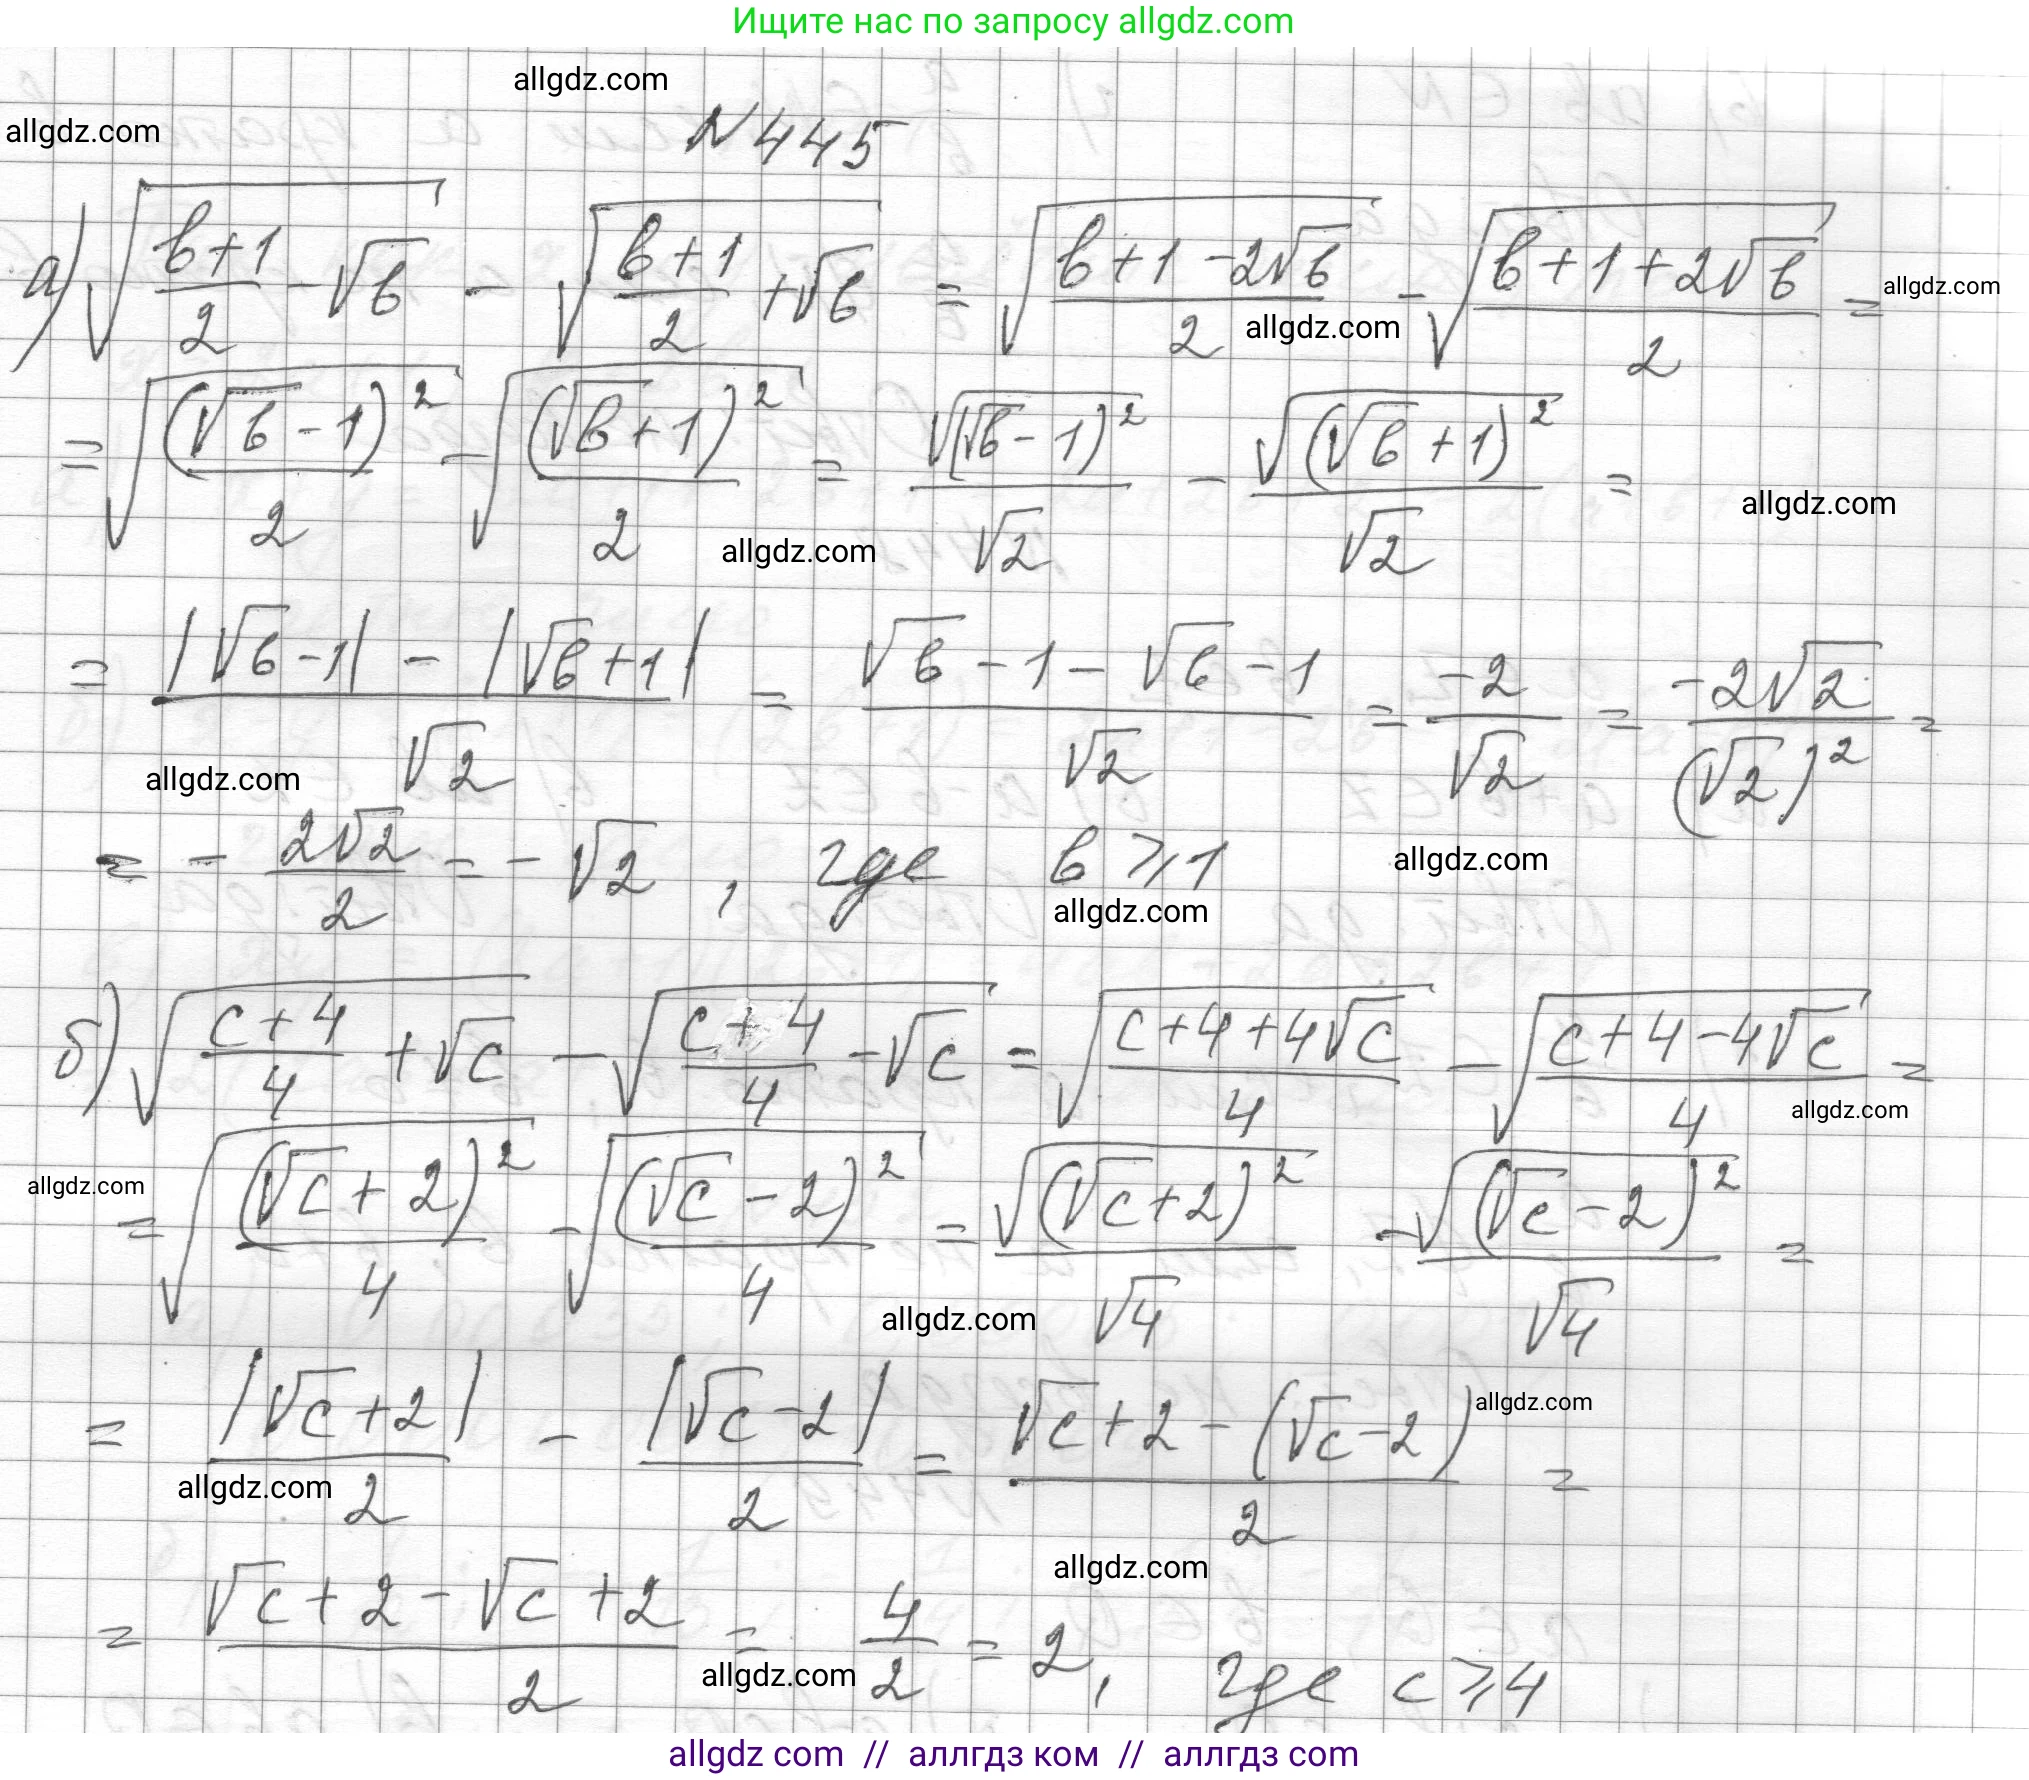 Ищите нас по запросу allgdz.com
allgdz.com
allgdz.com
N 445
а) √((в+1)/2 - √в) - √((в+1)/2 + √в) = √((в+1-2√в)/2) - √((в+1+2√в)/2) =
allgdz.com
allgdz.com
= √((√в-1)²/2) - √((√в+1)²/2) = √((√в-1)²)/√2 - √((√в+1)²)/√2 =
allgdz.com
allgdz.com
= (|√в-1| - |√в+1|)/√2 = (√в-1-√в-1)/√2 = -2/√2 = -2√2/(√2)² =
allgdz.com
= - 2√2/2 = - √2 , где в ⩾ 1
allgdz.com
allgdz.com
б) √((c+4)/4 + √c) - √((c+4)/4 - √c) = √((c+4+4√c)/4) - √((c+4-4√c)/4) =
allgdz.com
allgdz.com
= √((√c+2)²/4) - √((√c-2)²/4) = √((√c+2)²)/√4 - √((√c-2)²)/√4 =
allgdz.com
= |√c+2|/2 - |√c-2|/2 = (√c+2-(√c-2))/2 =
allgdz.com
allgdz.com
allgdz.com
= (√c+2-√c+2)/2 = 4/2 = 2, где c ⩾ 4
allgdz.com
allgdz com // аллгдз ком // аллгдз com